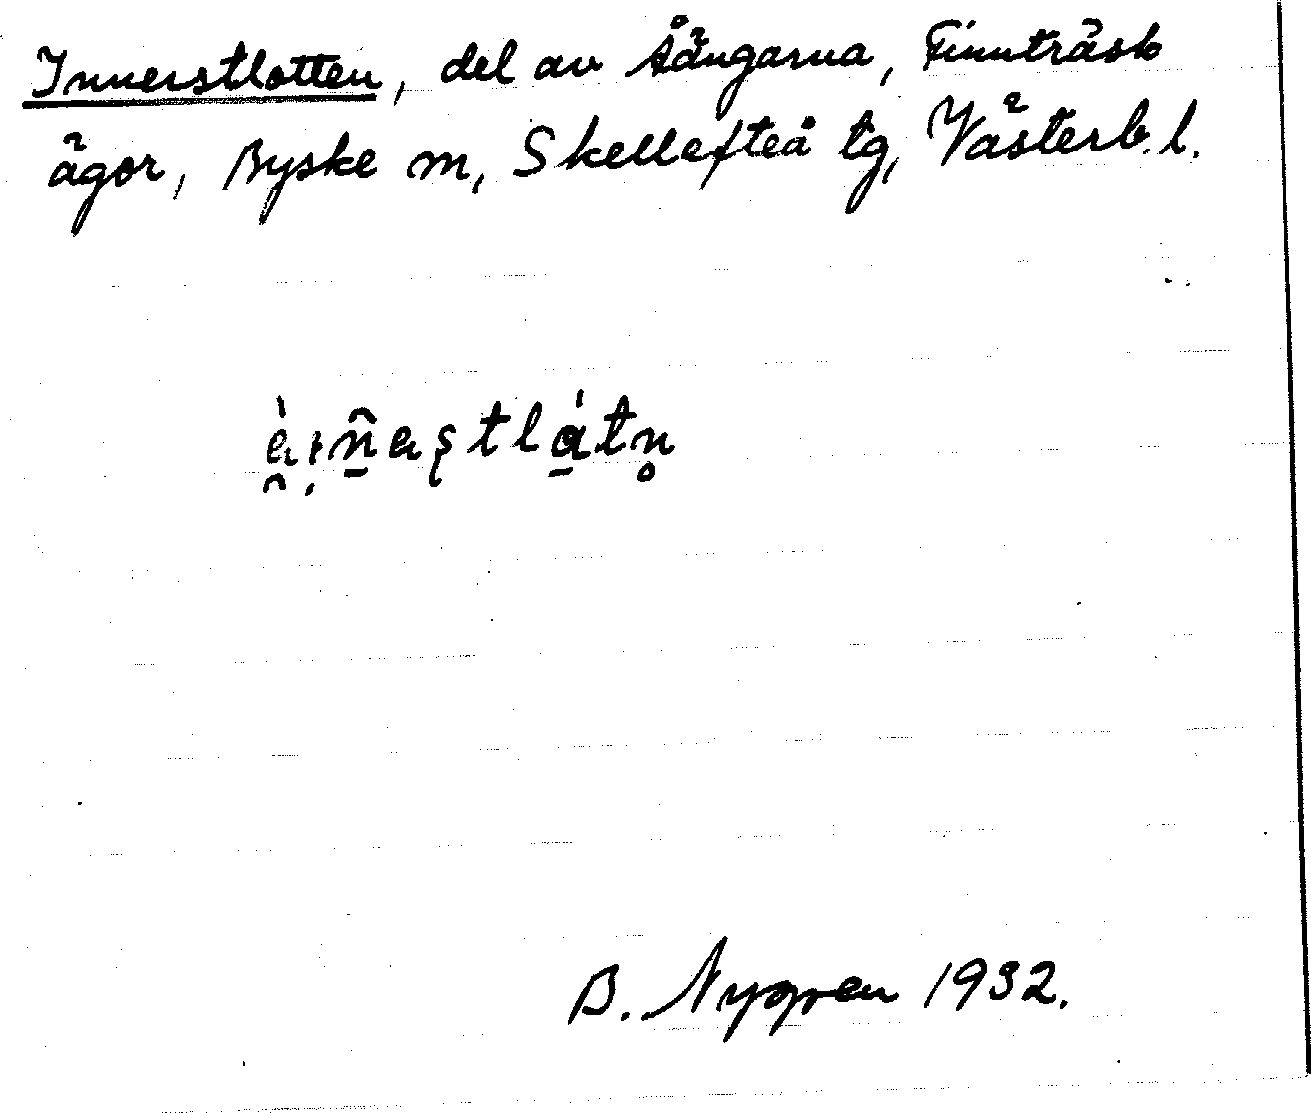 Innerstlotten, del av Åängarna, Finnträsk
ägor, Byske sn, Skellefteå tg, Västerb. l.
B. Nygren 1932.